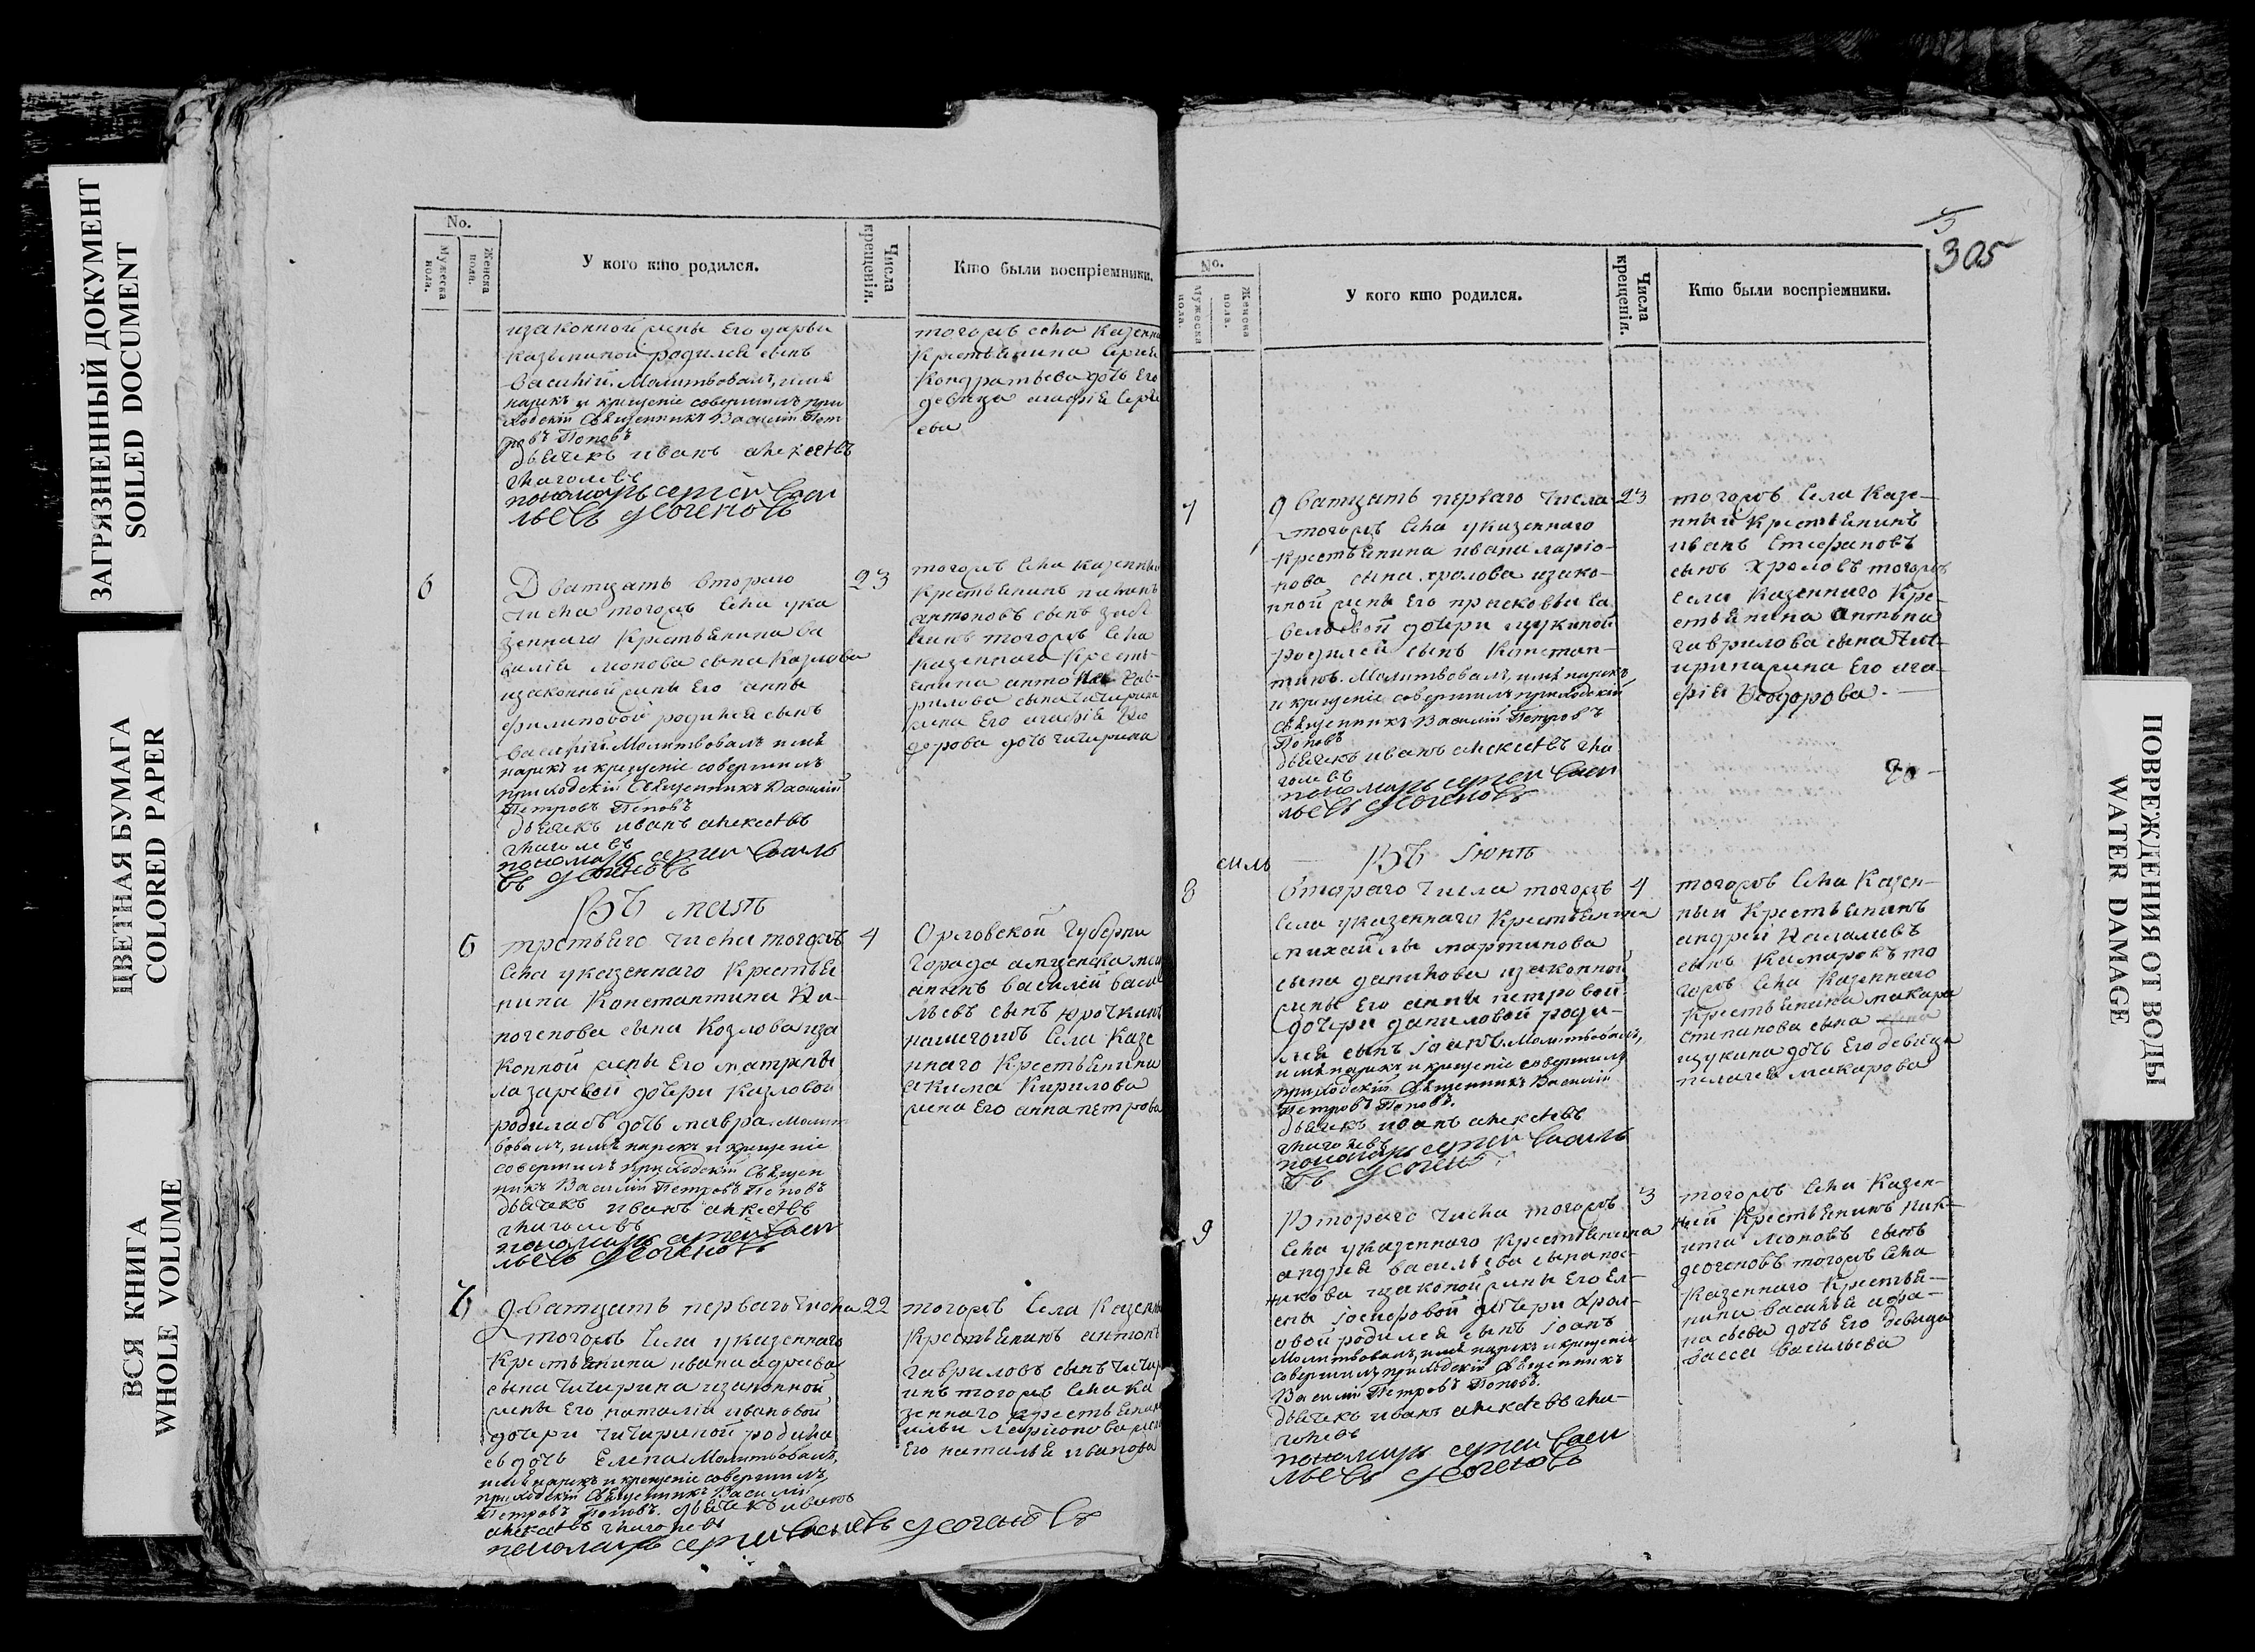 ЗАГРЯЗНЕННЫЙ ДОКУМЕНТ
SOILED DOCUMENT
ЦВЕТНАЯ БУМАГА
COLORED PAPER
ВСЯ КНИГА
WHOLE VOLUME
No.
Мужеска пола.
Женска пола.
У кого кто родился.
Числа крещенія.
Кто были воспріемники.
изаконной жены Его дарьи
казминой родился сынъ
Василій. Молитвовалъ, имя
нарекъ и крещеніе совершилъ при
ходскій Священникъ Василій Пет
ровъ Поповъ
дьячекъ иванъ алексеевъ
глаголевъ
пономарь сергей васи
льевъ
тогожъ села казенна
крестьянина сергея
Кондратьева дочь Его
девица агафія серге
ева
6
Дватцать втораго
числа тогожъ села ука
зеннаго крестьянина ва
силія сына Козлова
изаконной жены Его анны
филиповой родился сынъ
Василій. Молитвовалъ имя
нарекъ и крещеніе совершилъ
приходскій Священникъ Василій
Петровъ Поповъ
дьячекъ иванъ алексеевъ
глаголевъ
пономарь сергей василь
евъ
23
тогожъ села казенны
крестьянинъ
антоновъ сынъ
тогожъ села
казеннаго кресть
янина антона гав
рилова сына чичирина
жена Его агафія фео
дорова дочь чичирина
ВЪ маѣ
6
третьяго числа тогожъ
села указеннаго крестья
нина Константина
сына Козлова иза
конной жены Его матрены
лазаревой дочери казловой
родилась дочь мавра. Молит
вовалъ, имя нарекъ и крещеніе
совершилъ приходскій Священ
никъ Василій Петровъ Поповъ
дьячекъ иванъ алексеевъ
глаголевъ
пономарь сергей васи
льевъ
4
Орловской Губерни
города амценска мещ
анинъ василей васи
льевъ сынъ юрочкинъ
нашегожъ села казе
ннаго крестьянина
акима Кирилова
жена Его анна петрова
дватцать перваго числа
тогожъ села указеннаго
крестьянина ивана
сына чичирина изаконной
жены Его наталіи ивановой
дочери чичириной родила
сь дочь Елена. Молитвовалъ,
имя нарекъ и крещеніе совершилъ
приходскій Священникъ Василій
Петровъ Поповъ. дьячекъ иванъ
алексеевъ глаголевъ
пономарь сергей васильевъ
22
тогожъ села казенны
крестьянинъ антонъ
гавриловъ сынъ чичир
инъ тогожъ села ка
зеннаго крестьянина
ильи ларіонова жена
Его наталья иванова
305
No.
Мужеска пола.
Женска пола.
У кого кто родился.
Числа крещенія.
Кто были воспріемники.
7
дватцать перваго числа
тогожъ села указеннаго
крестьянина ивана ларіо-
нова сына хролова изако-
нной жены Его прасковьи са
вельевой дочери щукиной
родился сынъ Констан-
тинъ. Молитвовалъ, имя нарекъ,
и крещеніе совершилъ приходскій
Священникъ Василій Петровъ
Поповъ
дьячекъ иванъ алексеевъ гла
голевъ
пономарь сергей васи
льевъ
23
тогожъ села казе-
нный крестьянинъ
иванъ Стефановъ
сынъ хроловъ тогожъ
села казеннаго кре-
стьянина антона
гаврилова сына чич-
ирина жена Его ага-
фія Феодорова.
ВЪ Іюнѣ
8
втораго числа тогожъ
села указеннаго крестьянина
михайлы мартинова
сына данилова изаконной
жены Его анны петровой
дочери даниловой роди-
лся сынъ Іоаннъ. Молитвовалъ,
имя нарекъ и крещеніе совершилъ
приходскій Священникъ Василій
Петровъ Поповъ.
дьячекъ иванъ алексеевъ
глаголевъ
пономарь сергей василь
евъ
4
тогожъ села казен-
ный крестьянинъ
андрей
сынъ Камаровъ то
гожъ села казеннаго
крестьянина макара
степанова сына
щукина дочь Его девица
пелагея макарова
9
Втораго числа тогожъ
села указеннаго крестьянина
андрея васильева сына нос-
икова изаконой жены Его Ел-
ены Іосифовой дочери хрол-
овой родился сынъ Іоанъ
Молитвовалъ имя нарекъ и крещеніе
совершилъ приходскій Священникъ
Василій Петровъ Поповъ.
дьячекъ иванъ алексеевъ гла-
голевъ
пономарь сергей васи
льевъ
3
тогожъ села казен-
ный крестьянинъ ник-
ита сынъ
тогожъ села
казеннаго крестья-
нина василья афа-
насьева дочь Его девица
васса васильева
ПОВРЕЖДЕНИЯ ОТ ВОДЫ
WATER DAMAGE